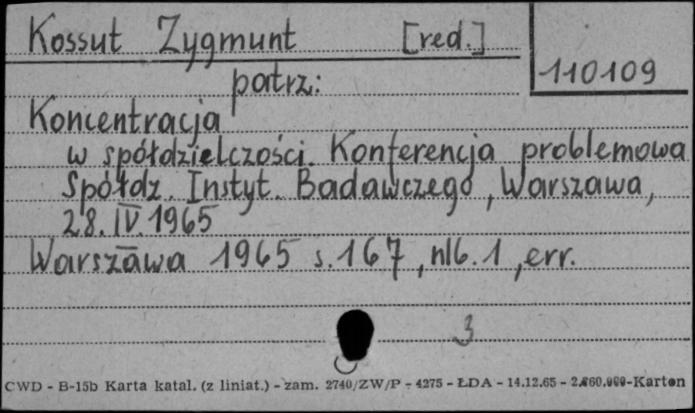 Kossut Zygmunt [red.]
110109
patrz:
Koncentracja
w spółdzielczości. Konferencja problemowa
Spółdz. Instyt. Badawczego, Warszawa,
28.IV.1965
Warszawa 1965 s.167, nlb.1, err.
3
CWD - B-15b Karta katal. (z liniat.) - zam. 2740/ZW/P - 4275 - ŁDA - 14.12.65 - 2.860.000-Karton